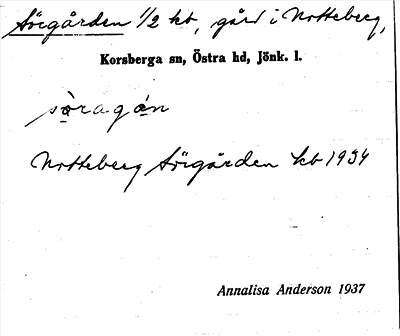 Sörgården 1/2 kb, gård i Notteberg,
Korsberga sn, Östra hd, Jönk. l.
sò̱ragá̱n
Notteberg Sörgården kb 1934
Annalisa Anderson 1937